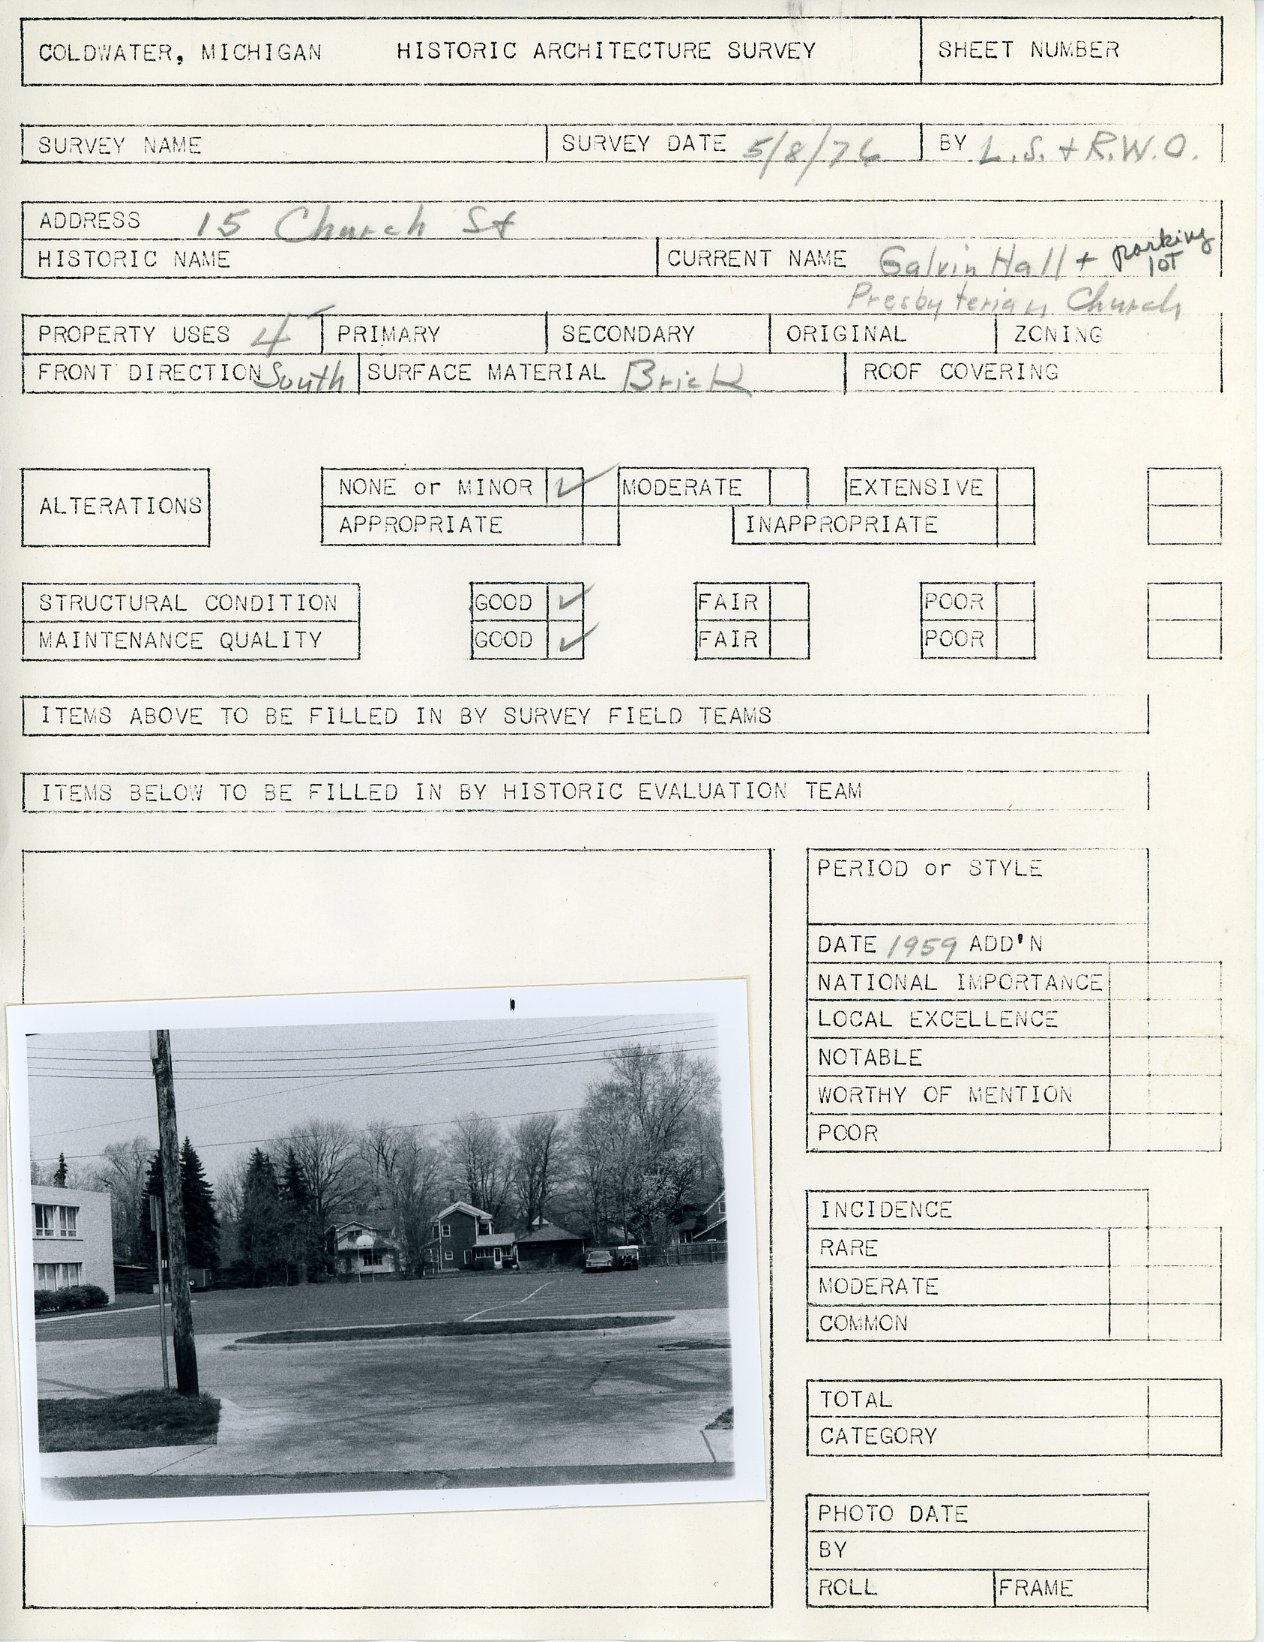 COLDWATER, MICHIGAN HISTORIC ARCHITECTURE SURVEY SHEET NUMBER
SURVEY NAME SURVEY DATE 5/8/76 BY L.S. + R.W.O.
ADDRESS 15 Church St
HISTORIC NAME CURRENT NAME Galvin Hall + parking lot
Presbyterian Church
PROPERTY USES 4 PRIMARY SECONDARY ORIGINAL ZONING
FRONT DIRECTION South SURFACE MATERIAL Brick ROOF COVERING
ALTERATIONS
NONE or MINOR ✓ MODERATE EXTENSIVE
APPROPRIATE INAPPROPRIATE
STRUCTURAL CONDITION GOOD ✓ FAIR POOR
MAINTENANCE QUALITY GOOD ✓ FAIR POOR
ITEMS ABOVE TO BE FILLED IN BY SURVEY FIELD TEAMS
ITEMS BELOW TO BE FILLED IN BY HISTORIC EVALUATION TEAM
PERIOD or STYLE
DATE 1959 ADD'N
NATIONAL IMPORTANCE
LOCAL EXCELLENCE
NOTABLE
WORTHY OF MENTION
POOR
INCIDENCE
RARE
MODERATE
COMMON
TOTAL
CATEGORY
PHOTO DATE
BY
ROLL FRAME